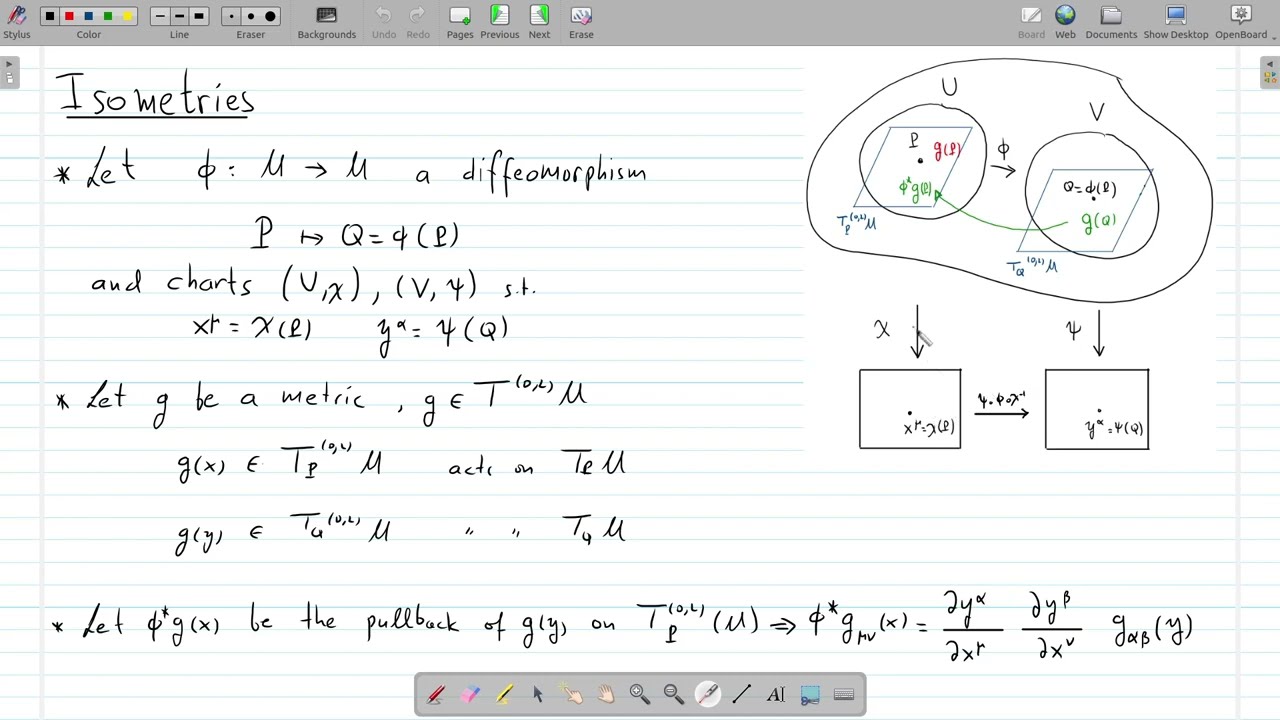 Stylus Color Line Eraser Backgrounds Undo Redo Pages Previous Next Erase Board Web Documents Show Desktop OpenBoard
Isometries
* Let ϕ : M → M a diffeomorphism
P ↦ Q = ϕ(P)
and charts (U,χ), (V,ψ) s.t.
x^μ = χ(P) y^α = ψ(Q)
* Let g be a metric, g ∈ T^(0,2) M
g(x) ∈ T_P^(0,2) M acts on T_P M
g(y) ∈ T_Q^(0,2) M " " T_Q M
* Let ϕ*g(x) be the pullback of g(y) on T_P^(0,2)(M) ⇒ ϕ*g_μν(x) = ∂y^α/∂x^μ ∂y^β/∂x^ν g_αβ(y)
U
V
P
g(P)
ϕ
ϕ*g(P)
Q=ϕ(P)
g(Q)
T_P^(0,2) M
T_Q^(0,2) M
χ
ψ
ψ∘ϕ∘χ^-1
x^μ=χ(P)
y^α=ψ(Q)
AI